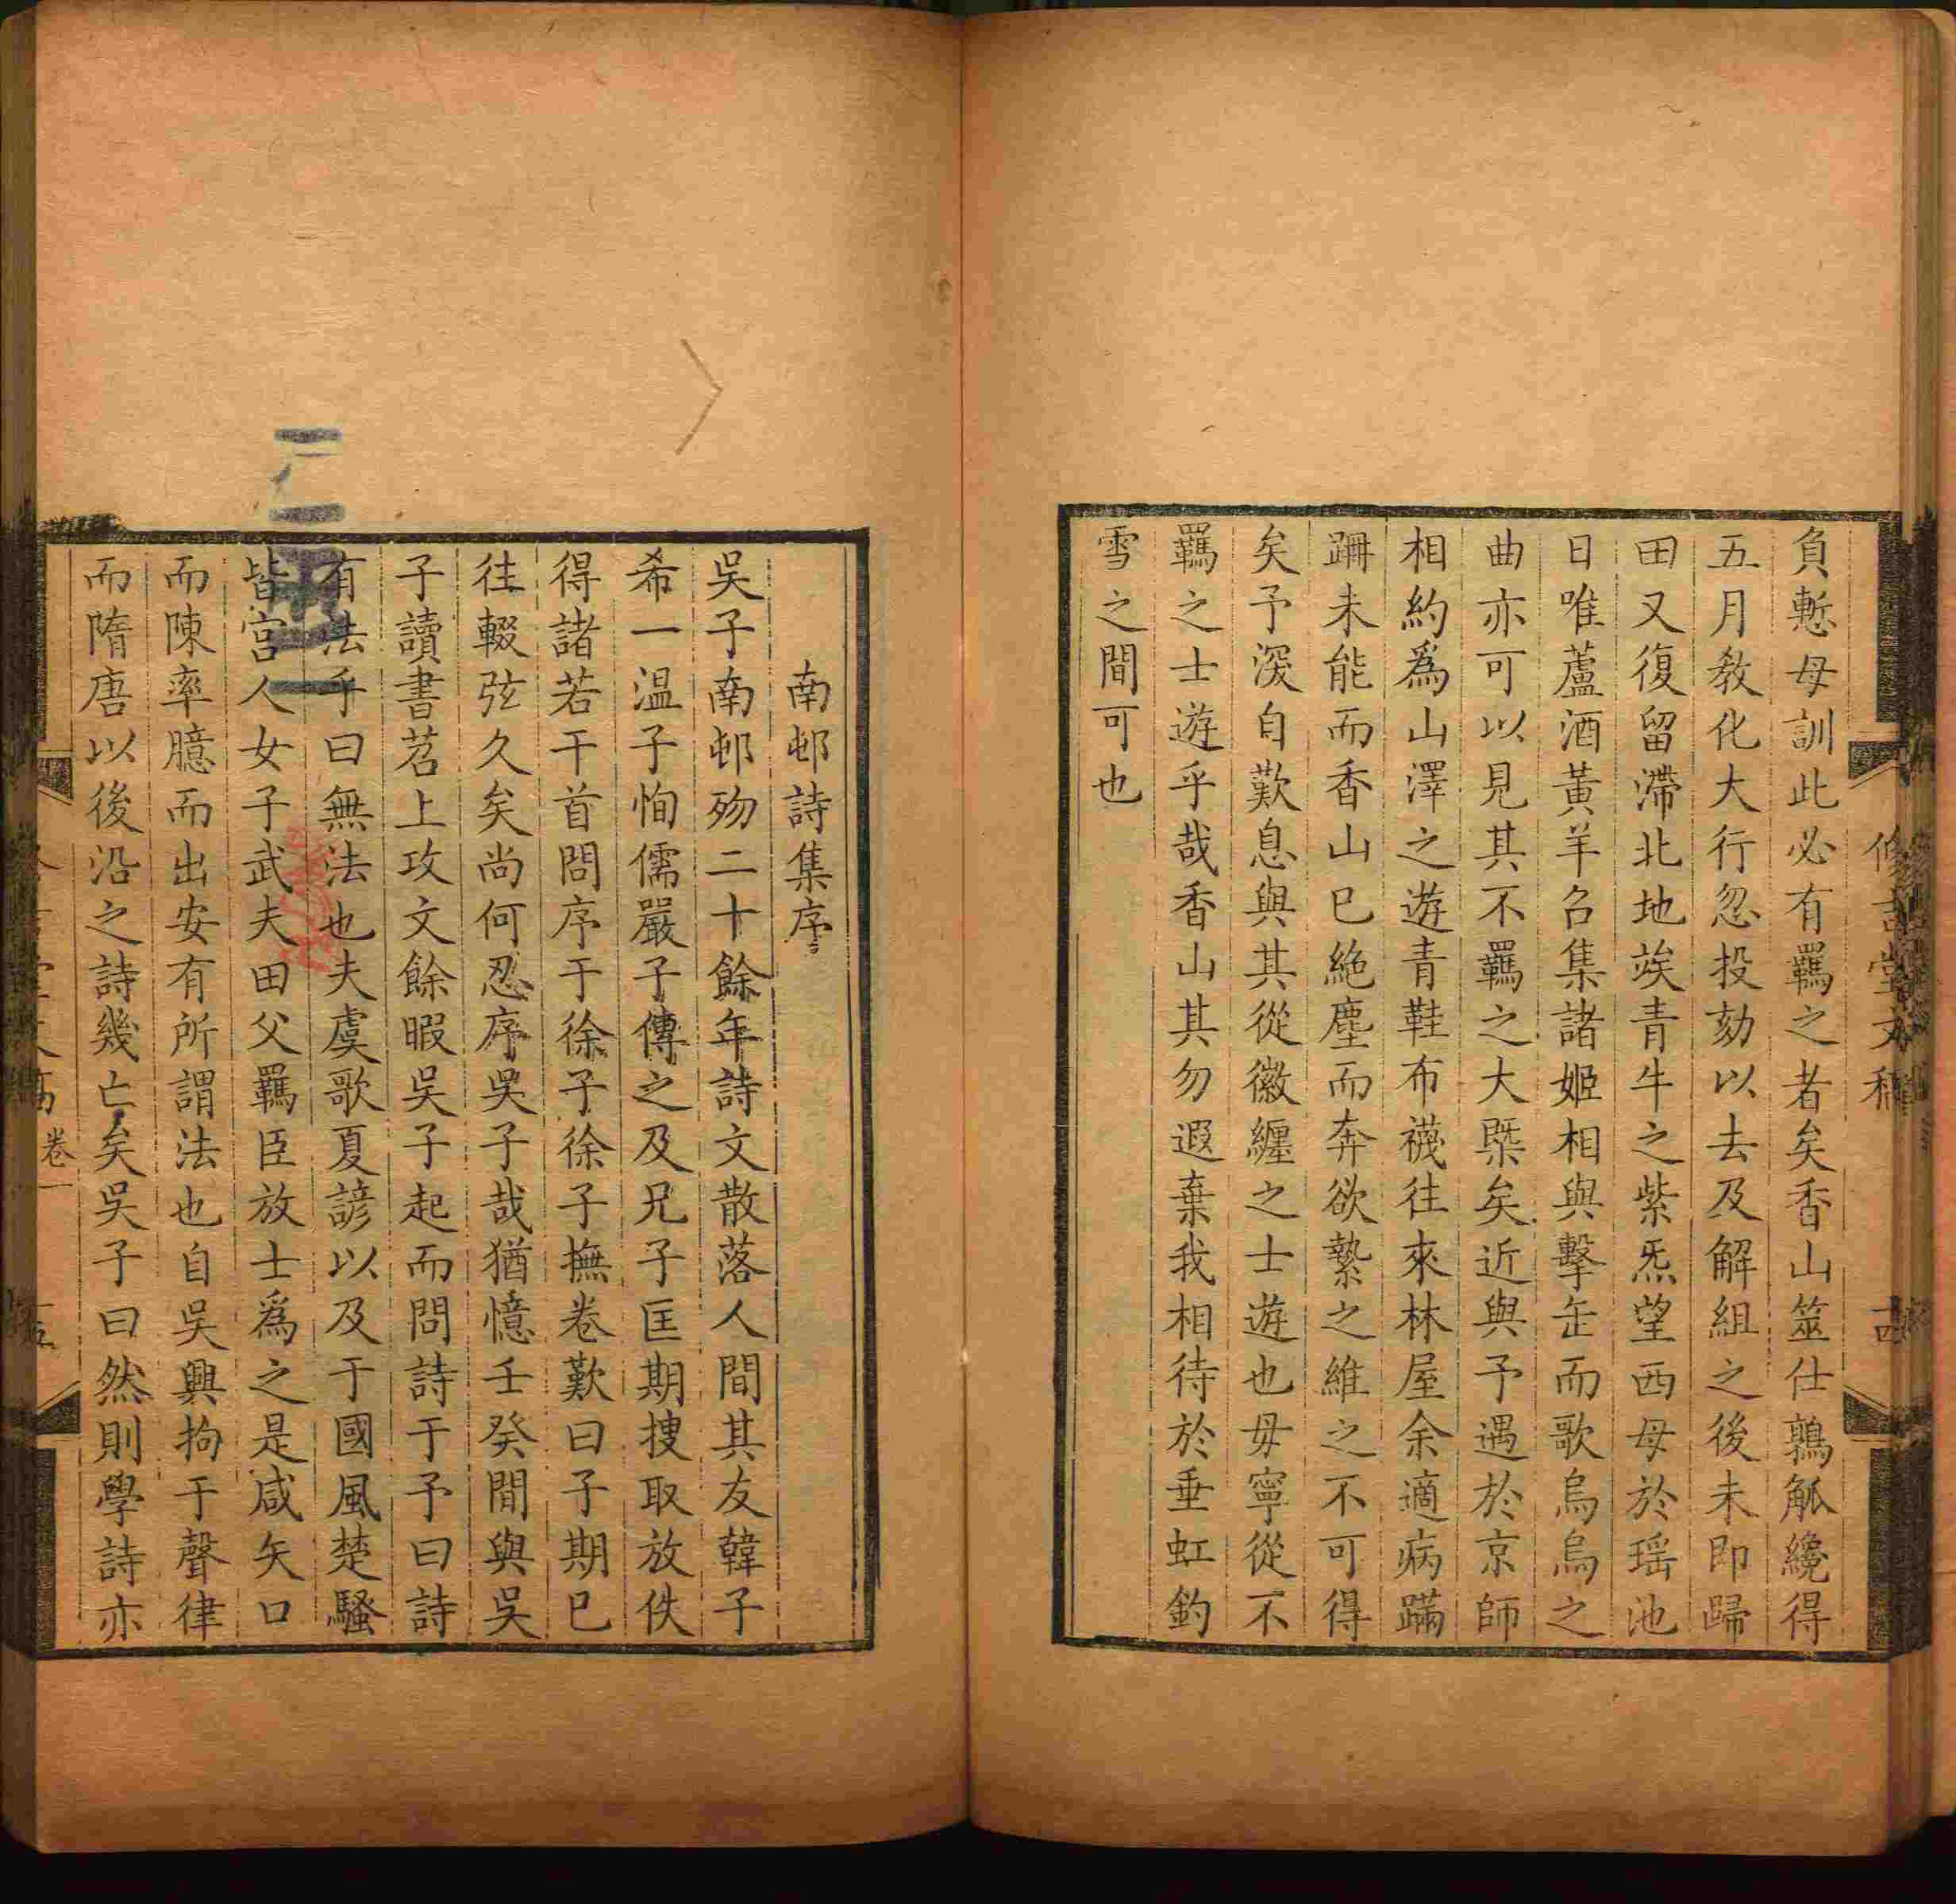 負慙母訓此必有羈之者矣香山筮仕鶉觚纔得
五月教化大行忽投劾以去及解組之後未即歸
田又復留滯北地竢青牛之紫炁望西母於瑶池
日唯蘆酒黃羊召集諸姬相與擊缶而歌烏烏之
曲亦可以見其不羈之大槩矣近與予遇於京師
相約爲山澤之遊青鞋布襪往來林屋余適病蹣
跚未能而香山已絶塵而奔欲縶之維之不可得
矣予深自歎息與其從徽纏之士遊也毋寧從不
羈之士遊乎哉香山其勿遐棄我相待於垂虹釣
雪之間可也
南邨詩集序
吳子南邨歿二十餘年詩文散落人間其友韓子
希一温子恂儒嚴子傳之及兄子匡期捜取放佚
得諸若干首問序于徐子徐子撫卷歎曰子期已
往輟弦久矣尚何忍序吳子哉猶憶壬癸間與吳
子讀書苕上攻文餘暇吳子起而問詩于予曰詩
有法乎曰無法也夫虞歌夏諺以及于國風楚騷
皆宮人女子武夫田父羈臣放士爲之是咸矢口
而陳率臆而出安有所謂法也自吳興拘于聲律
而隋唐以後沿之詩幾亡矣吳子曰然則學詩亦
卷一